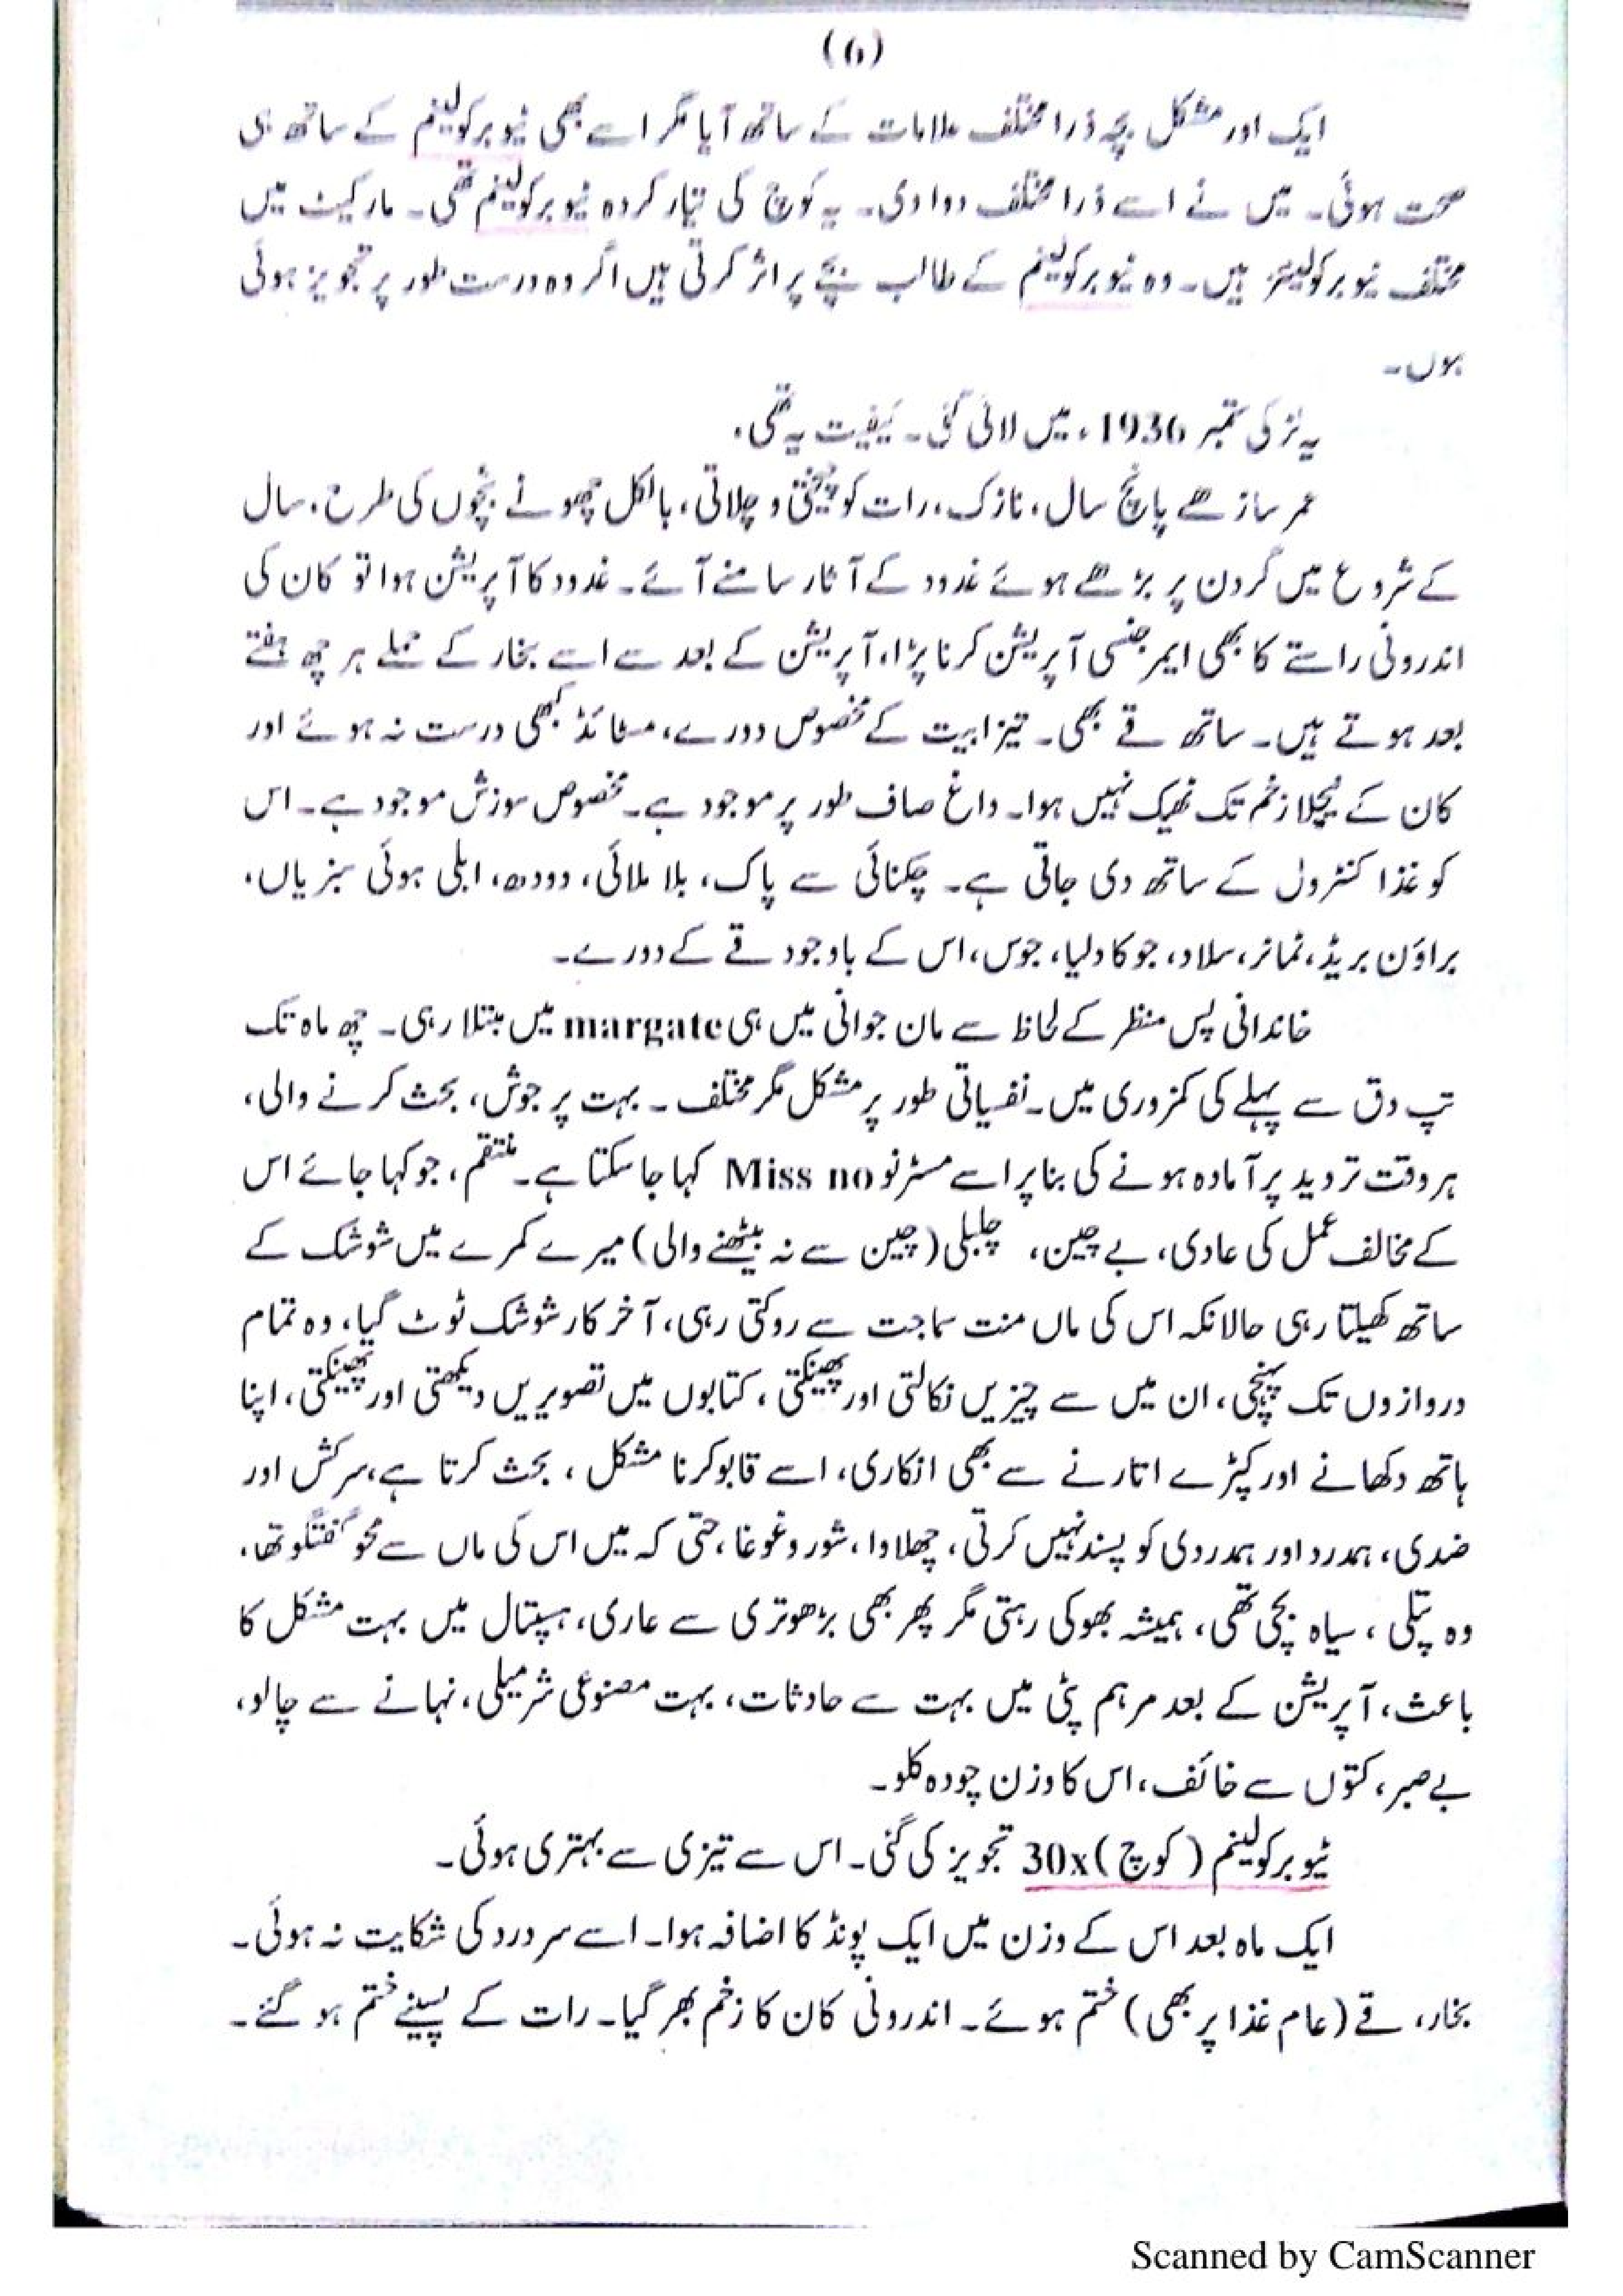 (6)
ایک اور مشکل بچہ ذرا مختلف علامات کے ساتھ آیا مگر اسے بھی ٹیوبرکولینم کے ساتھ ہی
صحت ہوئی۔ میں نے اسے ذرا مختلف دوا دی۔ یہ کوچ کی تیار کردہ ٹیوبرکولینم تھی۔ مارکیٹ میں
مختلف ٹیوبرکولینز ہیں۔ وہ ٹیوبرکولینم کے طالب بچے پر اثر کرتی ہیں اگر وہ درست طور پر تجویز ہوئی
ہوں۔
یہ لڑکی ستمبر 1936ء میں لائی گئی۔ کیفیت یہ تھی۔
عمر ساڑھے پانچ سال، نازک، رات کو چیختی و چلاتی، بالکل چھوٹے بچوں کی طرح، سال
کے شروع میں گردن پر بڑھے ہوئے غدود کے آثار سامنے آئے۔ غدود کا آپریشن ہوا تو کان کی
اندرونی راستے کا بھی ایمرجنسی آپریشن کرنا پڑا، آپریشن کے بعد سے اسے بخار کے حملے ہر چھ ہفتے
بعد ہوتے ہیں۔ ساتھ قے بھی۔ تیزابیت کے مخصوص دورے، مسٹائڈ کبھی درست نہ ہوئے اور
کان کے نچلا زخم تک ٹھیک نہیں ہوا۔ داغ صاف طور پر موجود ہے۔ مخصوص سوزش موجود ہے۔ اس
کو غذا کنٹرول کے ساتھ دی جاتی ہے۔ چکنائی سے پاک، بلا ملائی، دودھ، ابلی ہوئی سبزیاں،
براؤن بریڈ، ٹماٹر، سلاد، جو کا دلیا، جوس، اس کے باوجود قے کے دورے۔
خاندانی پس منظر کے لحاظ سے مان جوانی میں ہی margate میں مبتلا رہی۔ چھ ماہ تک
تپ دق سے پہلے کی کمزوری میں۔ نفسیاتی طور پر مشکل مگر مختلف۔ بہت پر جوش، بحث کرنے والی،
ہر وقت تردید پر آمادہ ہونے کی بنا پر اسے مسٹرنو Miss no کہا جا سکتا ہے۔ منتقم، جو کہا جائے اس
کے مخالف عمل کی عادی، بے چین، چلبلی (چین سے نہ بیٹھنے والی) میرے کمرے میں شوشک کے
ساتھ کھیلتا رہی حالانکہ اس کی ماں منت سماجت سے روکتی رہی، آخر کار شوشک ٹوٹ گیا، وہ تمام
دروازوں تک پہنچی، ان میں سے چیزیں نکالتی اور پھینکتی، کتابوں میں تصویریں دیکھتی اور پھینکتی، اپنا
ہاتھ دکھانے اور کپڑے اتارنے سے بھی انکاری، اسے قابو کرنا مشکل، بحث کرتا ہے، سرکش اور
ضدی، ہمدرد اور ہمدردی کو پسند نہیں کرتی، چھلاوا، شور و غوغا، حتیٰ کہ میں اس کی ماں سے محو گفتگو تھا۔
وہ پتلی، سیاہ بچی تھی، ہمیشہ بھوکی رہتی مگر پھر بھی بڑھوتری سے عاری، ہسپتال میں بہت مشکل کا
باعث، آپریشن کے بعد مرہم پٹی میں بہت سے حادثات، بہت مصنوعی شرمیلی، نہانے سے چالو،
بے صبر، کتوں سے خائف، اس کا وزن چودہ کلو۔
ٹیوبرکولینم (کوچ) 30x تجویز کی گئی۔ اس سے تیزی سے بہتری ہوئی۔
ایک ماہ بعد اس کے وزن میں ایک پونڈ کا اضافہ ہوا۔ اسے سر درد کی شکایت نہ ہوئی۔
بخار، قے (عام غذا پر بھی) ختم ہوئے۔ اندرونی کان کا زخم بھر گیا۔ رات کے پسینے ختم ہو گئے۔
Scanned by CamScanner